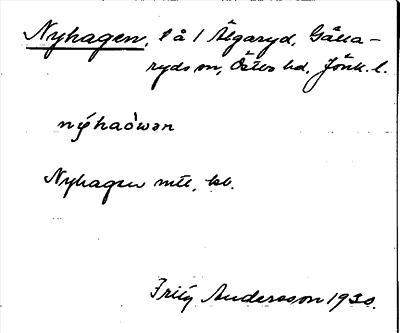 Nyhagen, l å / Älgaryd, Gålla-
ryds sn, Östbo hd, Jönk. l.
nýhaòwən
Nyhagen mtl, kb.
Fritz Andersson 1930.